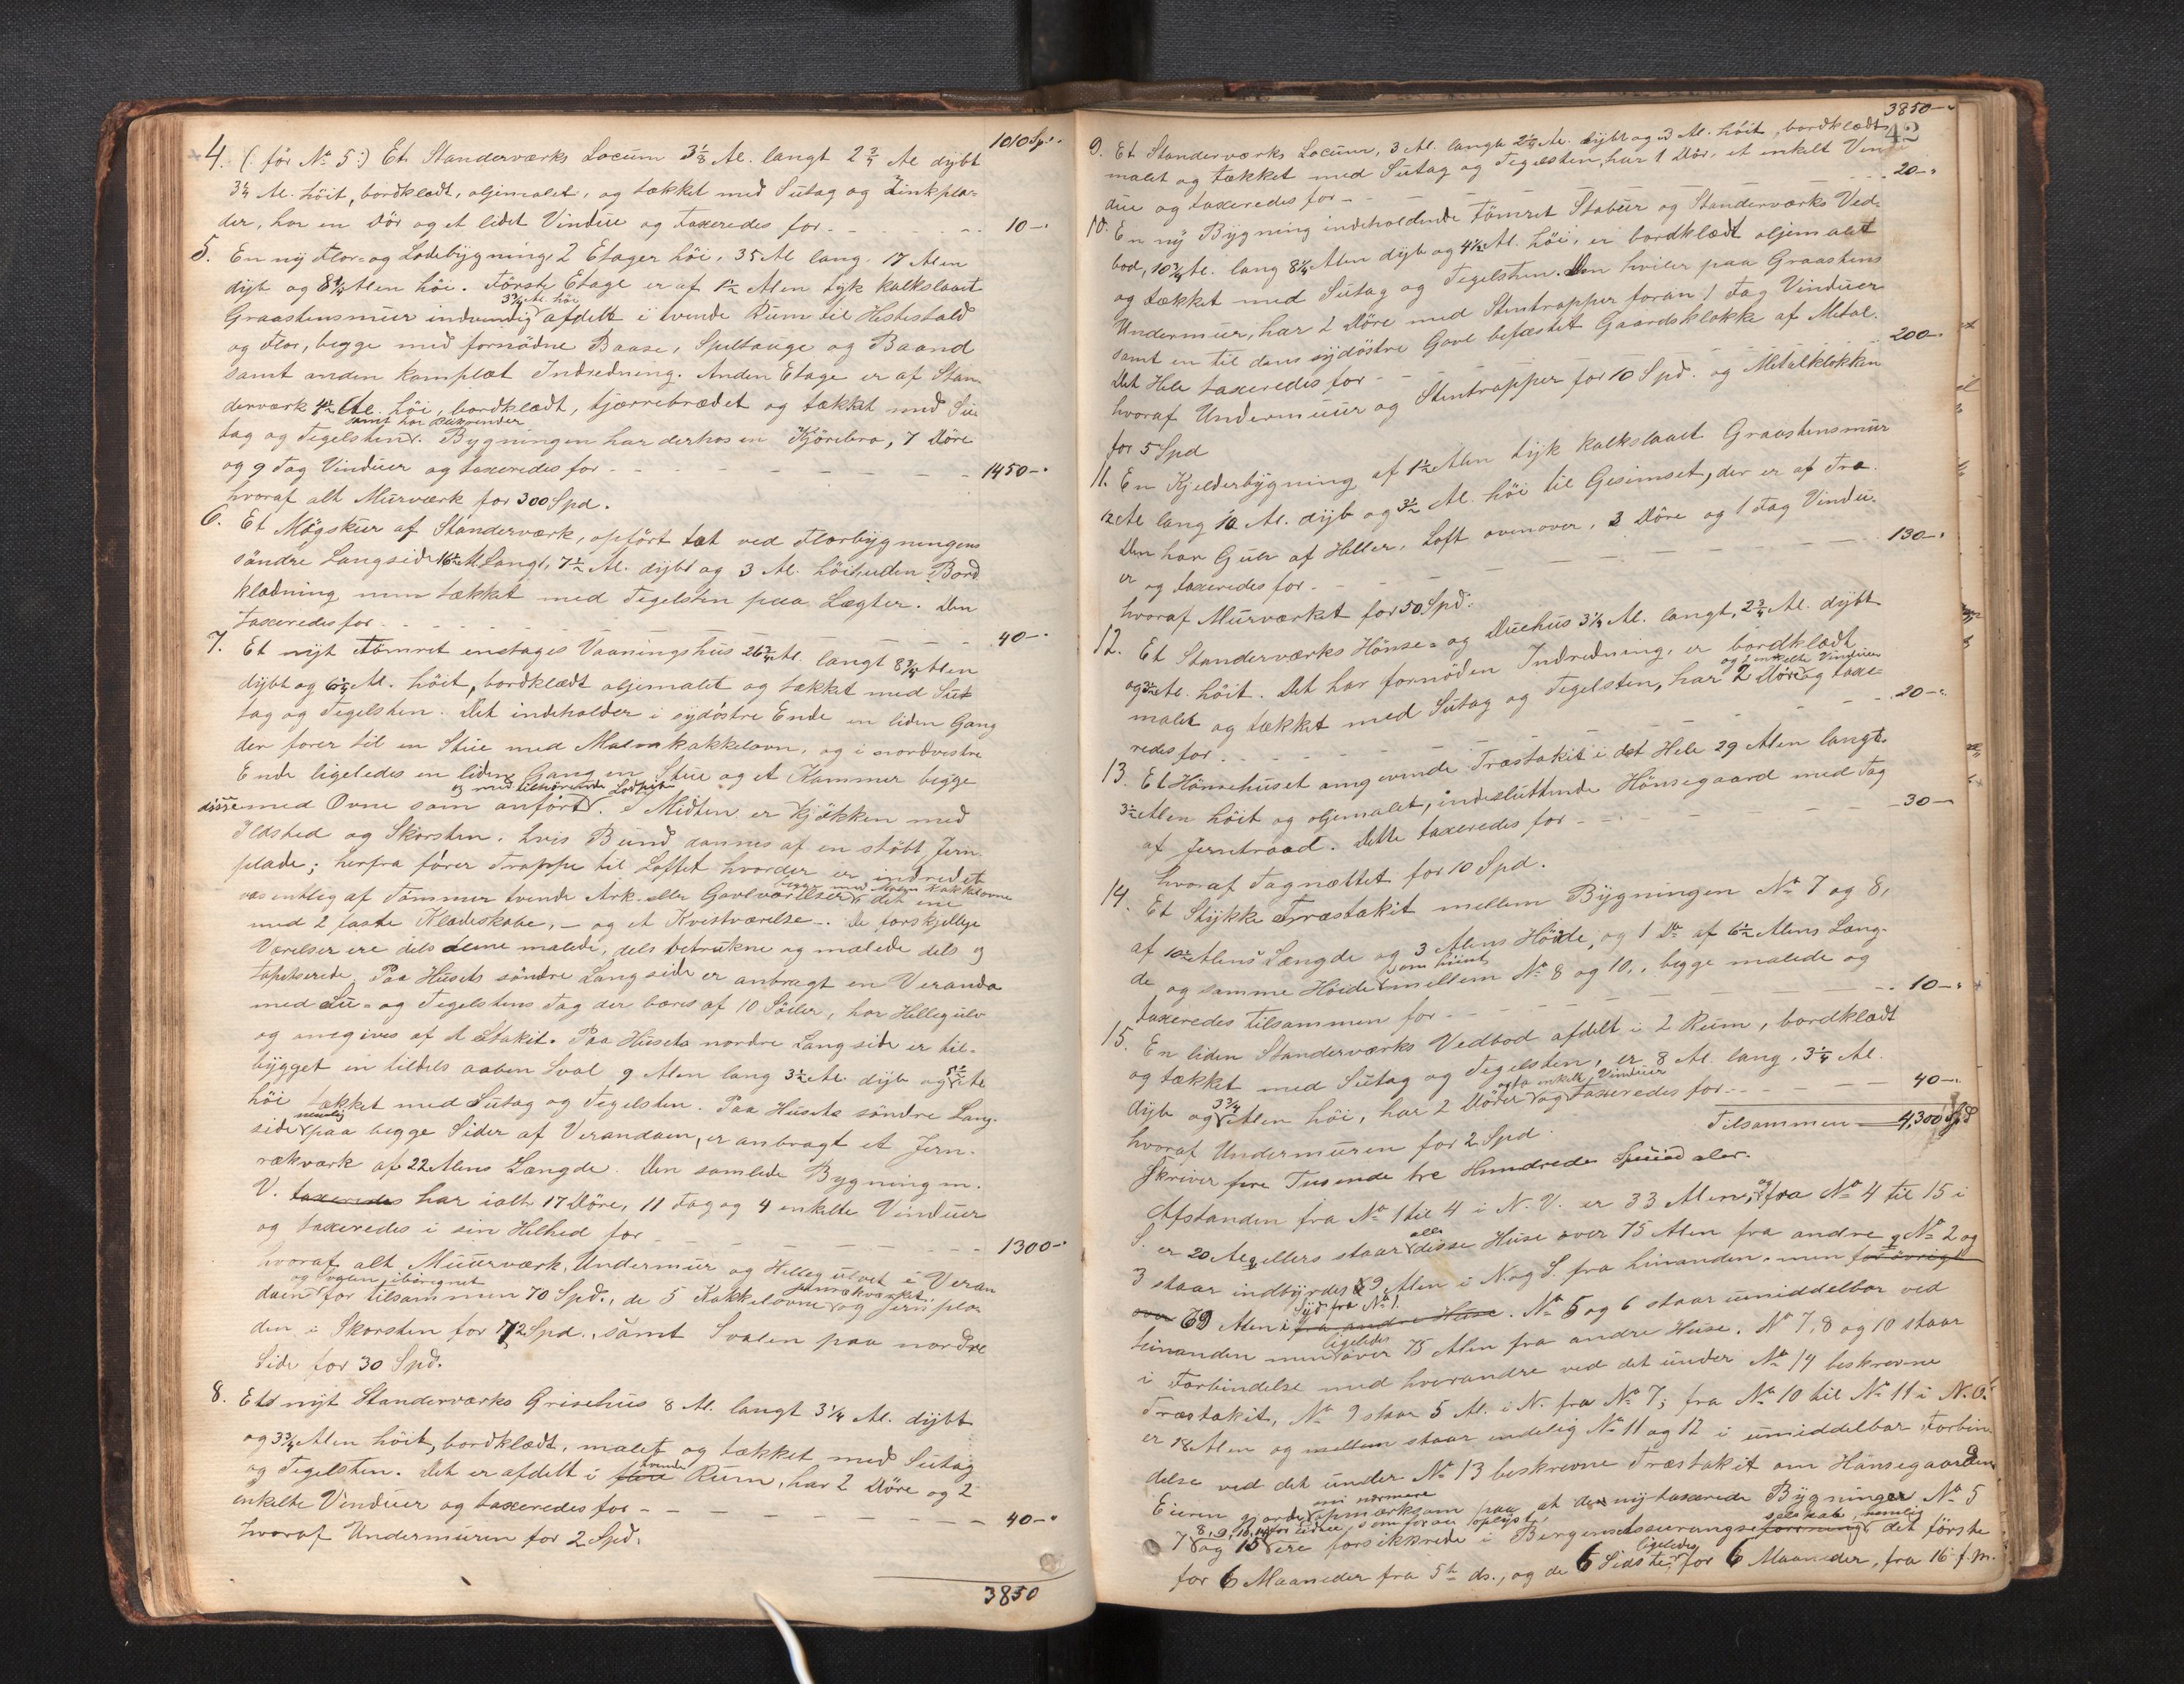 1010 Sp.
4. (: før No 5:) Et Standerværks Locum 3⅛ Al. langt 2¾ Al dybt
3¼ Al. höit, bordklædt, oljemalet, og tækket med Sutag og Zinkpla-
der, har en Dör og et lidet Vindue og taxeredes for - - - 10 -
5. En ny Flor- og Ladebygning, 2 Etager höi, 35 Al lang. 17 Alen
dyb og 8¼ Alen höi. Förste Etage er af 1½ Alen tyk kalkslaaet
3¾ Al. höi
Graastensmuur indvendig afdelt i tvende Rum til Hestestald
og Flor, begge med fornödne Baase, Spiltauge og Baand
samt anden komplet Indredning. Anden Etage er af Stan-
derværk 4½ Al. höi, bordklædt, tjærrebrædet og tækket med Su-
samt har Tagrender
tag og Tegelsten. Bygningen har derhos en Kjörebro, 7 Döre
og 9 Fag Vinduer og taxeredes for - - - 1450 -
hvoraf alt Murværk for 300 Spd.
6. Et Mögskur af Standerværk, opfört tæt ved Florbygningens
söndre Langside 16½ Al Langt, 7½ Al. dybt og 3 Al. höit, uden Bord
klædning men tækket med Tegelsten paa Lægter. Den
taxeredes for - - - 40 -
7. Et nyt tömret enetages Vaaningshus 26¾ Al. langt 8¾ Alen
dybt og 6¼ Al. höit, bordklædt oljemalet og tækket med Su-
tag og Tegelsten. Det indeholder i sydöstre Ende en liden Gang
der förer til en Stue med Kakkelovn, og i nordvestre
Ende ligeledes en liden Gang en Stue og et Kammer begge
og med tilhörende
disse med Ovne som anfört. I Midten er Kjökken med
Ildsted og Skorsten, hvis Bund dannes af en stöbt Jern-
plade; herfra förer Trappe til Loftet hvorder er indredet
begge med Kakkelovne
væsentlig af Tömmer tvende Ark- eller Gavlværelser, det ene
med 2 faste Klædeskabe, - og et Kvistværelse -. De forskjellige
Værelser ere dels malede, dels betrukne og malede dels og
tapetserede. Paa Husets söndre Langside er anbragt en Veranda
med Su- og Tegelstens Tag der bæres af 10 Söiler, har Hellegulv
og omgives af et Stakit. Paa Husets nordre Langside er til-
bygget en tildels aaben Sval 9 Alen lang 3½ Al. dyb og Al
höi tækket med Sutag og Tegelsten. Paa Husets söndre Lang-
nemlig
side paa begge Sider af Verandaen, er anbragt et Jern-
rækværk af 22 Alens Længde. Den samlede Bygning m.
V. taxeredes har ialt 17 Döre, 11 Fag og 4 enkelte Vinduer
og taxeredes i sin Helhed for - - - 1300 -
hvoraf alt Muurværk, Undermur og Hellegulvet i Veran
og Svalen iberegnet
daen for tilsammen 70 Spd., de 5 Kakkelovne og Jernpla-
den i Skorsten for 72 Spd., samt Svalen paa nordre
Side for 30 Spd.
8. Et nyt Standerværks Grisehus 8 Al. langt 3¼ Al. dybt
og 3¾ Alen höit, bordklædt, malet og tækket med Sutag
tvende
og Tegelsten. Det er afdelt i Rum, har 2 Döre og 2
enkelte Vinduer og taxeredes for - - - 40 -
hvoraf Undermuren for 2 Spd.
3850
3850 -
42
9. Et Standerværks Locum, 3 Al. langt 2¼ Al. dybt og 3 Al. höit, bordklædt
malet og tækket med Sutag og Tegelsten, har 1 Dör, et enkelt Vin-
due og taxeredes for - - - 20 -
10. En ny Bygning indeholdende tömret Stabur og Standerværks Ved-
bod, 10¾ Al. lang 8¼ Alen dyb og 4½ Al. höi, er bordklædt oljemalet
og tækket med Sutag og Tegelsten. Den hviler paa Graastens
Undermur, har 2 Döre med Stentrapper foran 1 Fag Vinduer
samt en til dens sydöstre Gavl befæstet Gaardsklokke af Metal.
Det Hele taxeredes for - - - 200 -
hvoraf Undermuur og Stentrapper for 10 Spd. og Metalklokken
for 5 Spd
11. En Kjelderbygning af 1½ Alen tyk kalkslaaet Graastensmur
12 Al lang 10 Al. dyb og 3½ Al. höi til Gesimset, der er af Træ.
Den har Gulv af Heller, Loft ovenover, 3 Döre og 1 Fag Vindu-
er og taxeredes for - - - 130 -
hvoraf Murværket for 50 Spd.
12. Et Standerværks Hönse- og Duehus 3¼ Al. langt, 2¾ Al. dybt
og 3½ Al. höit. Det har fornöden Indredning, er bordklædt
og enkelte Vinduer
malet og tækket med Sutag og Tegelsten, har 2 Döre og taxe-
redes for - - - 20 -
13. Et Hönsehuset omgivende Træstakit i det Hele 29 Alen langt
3½ Alen höit og oljemalet, indesluttende Hönsegaard med Tag
af Jerntraad. Dette taxeredes for - - - 30 -
hvoraf Tagnættet for 10 Spd.
14. Et Stykke Træstakit mellem Bygningen No 7 og 8,
af 10½ Alens Længde og 3 Alens Höide, og 1 Do af 6½ Alens Læng-
som hiint
de og samme Höide mellem No 8 og 10, begge malede og
taxeredes tilsammen for - - - 10 -
15. En liden Standerværks Vedbod afdelt i 2 Rum, bordklædt
og tækket med Sutag og Tegelsten, er 8 Al. lang, 3¼ Al.
og to enkelte Vinduer
dyb og 3¾ Alen höi, har 2 Dörer og taxeredes for - - - 40 -
hvoraf Undermuren for 2 Spd.
Tilsammen 4,300 Spd
Skriver fire Tusende tre Hundrede Speciedaler.
Afstanden fra No 1 til 4 i N.V. er 33 Alen, og fra No 4 til 15 i
alle
S. er 20 Al, ellers staar disse Huse over 75 Alen fra andre. No 2 og
3 staar indbyrdes 9 Alen i N. og S. fra hinanden, men for övrigt
Syd fra No 1.
over 69 Alen i fra andre Huse. No 5 og 6 staar umiddelbar ved
ligeledes
hinanden men over 75 Alen fra andre Huse. No 7, 8 og 10 staar
i Forbindelse med hverandre ved det under No 14 beskrevne
Træstakit, No 9 staar 5 Al. i N. fra No 7; fra No 10 til No 11 i N.O.
er 18 Alen og mellem staar endelig No 11 og 12 i umiddelbar Forbin-
delse ved det under No 13 beskrevne Træstakit om Hönsegaarden
Eieren gjorde opmærksom paa at de ny taxerede Bygninger No 5
7 og 15 ere forsikkrede i Bergens Assurance det förste
ligeledes
for 6 Maaneder fra 5te ds., og de 6 Sidste for 6 Maaneder, fra 16 f.M.